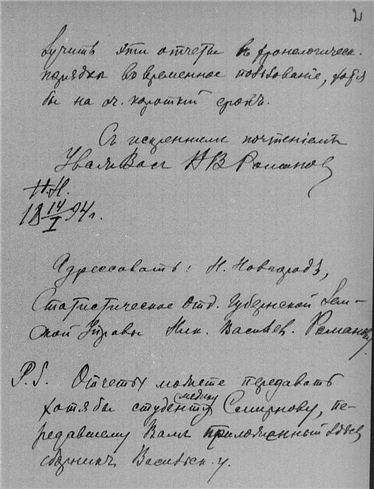 2
лучить эти отчеты в хронологическ.
порядке во временное пользование, хотя
бы на оч. короткий срокъ.
Съ искреннимъ почтеніемъ
Уваж. Васъ Н В Романов
Н.Н.
18 14/I 94 г.
Адрессовать: Н. Новгородъ,
Статистическое Отд. Губернской Зем-
ской Управы Ник. Васильев. Романову.
P.S. Отчеты можете передавать
хотя бы студенту медику Смирнову, пе-
редавшему Вамъ приложенный здесь
сборникъ Васильск. у.